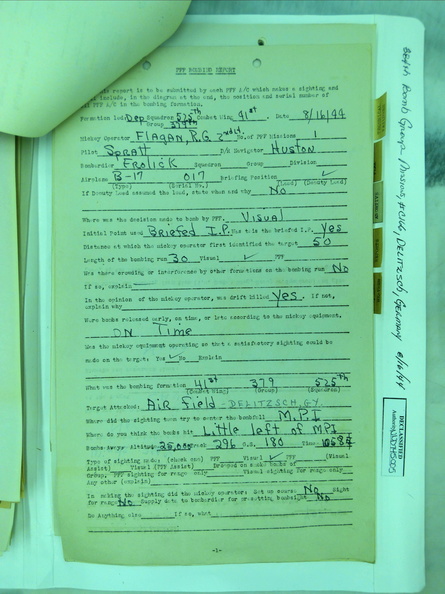 PFF BOMBING REPORT
This report is to be submitted by each PFF A/C which makes a sighting and
will include, in the diagram at the end, the position and serial number of
all PFF A/C in the bombing formation.
Formation led: Dep Squadron 525th Combat Wing 41st. Date 8/16/44
Group 379th
Mickey Operator Flagan, R.G. 2nd Lt. No. of PFF Missions 1
Pilot Spratt D/R Navigator Huston
Bombardier Frolick Squadron Group Division
Airplane B-17 017 Briefing Position ✓
(Type) (Serial No.) (Lead) (Deputy Lead)
If Deputy Lead assumed the lead, state when and why No
Where was the decision made to bomb by PFF. Visual
Initial Point used Briefed I.P. Was this the briefed I.P. Yes
Distance at which the mickey operator first identified the target 50
Length of the bombing run 30 Visual ✓ PFF
Was there crowding or interference by other formations on the bombing run No
If so, explain
In the opinion of the mickey operator, was drift killed Yes. If not,
explain why
Were bombs released early, on time, or late according to the mickey equipment.
ON Time
Was the mickey equipment operating so that a satisfactory sighting could be
made on the target: Yes ✓ No Explain
What was the bombing formation 41st 379 525th
(Combat Wing) (Group) (Squadron)
Target Attacked: Air Field - DELITZSCH, GY
Where did the sighting team try to center the bombfall M.P.I
Where do you think the bombs hit Little left of MPI
Bombs away: Altitude 25,000 Track 296 G.S. 180 Time
Type of sighting made: (check one) PFF Visual ✓ PFF (Visual
Assist) Visual (PFF Assist) Dropped on smoke bombs of
Group. PFF sighting for range only Visual sighting for range only
Any other (explain)
In making the sighting did the mickey operator: Set up course No Sight
for range No Supply data to bombardier for presetting bombsight No
Do Anything else If so, what
-1-
384th Bomb Group Mission, #C166, DELITZSCH, Germany 8/16/44
DECLASSIFIED
Authority NND745005